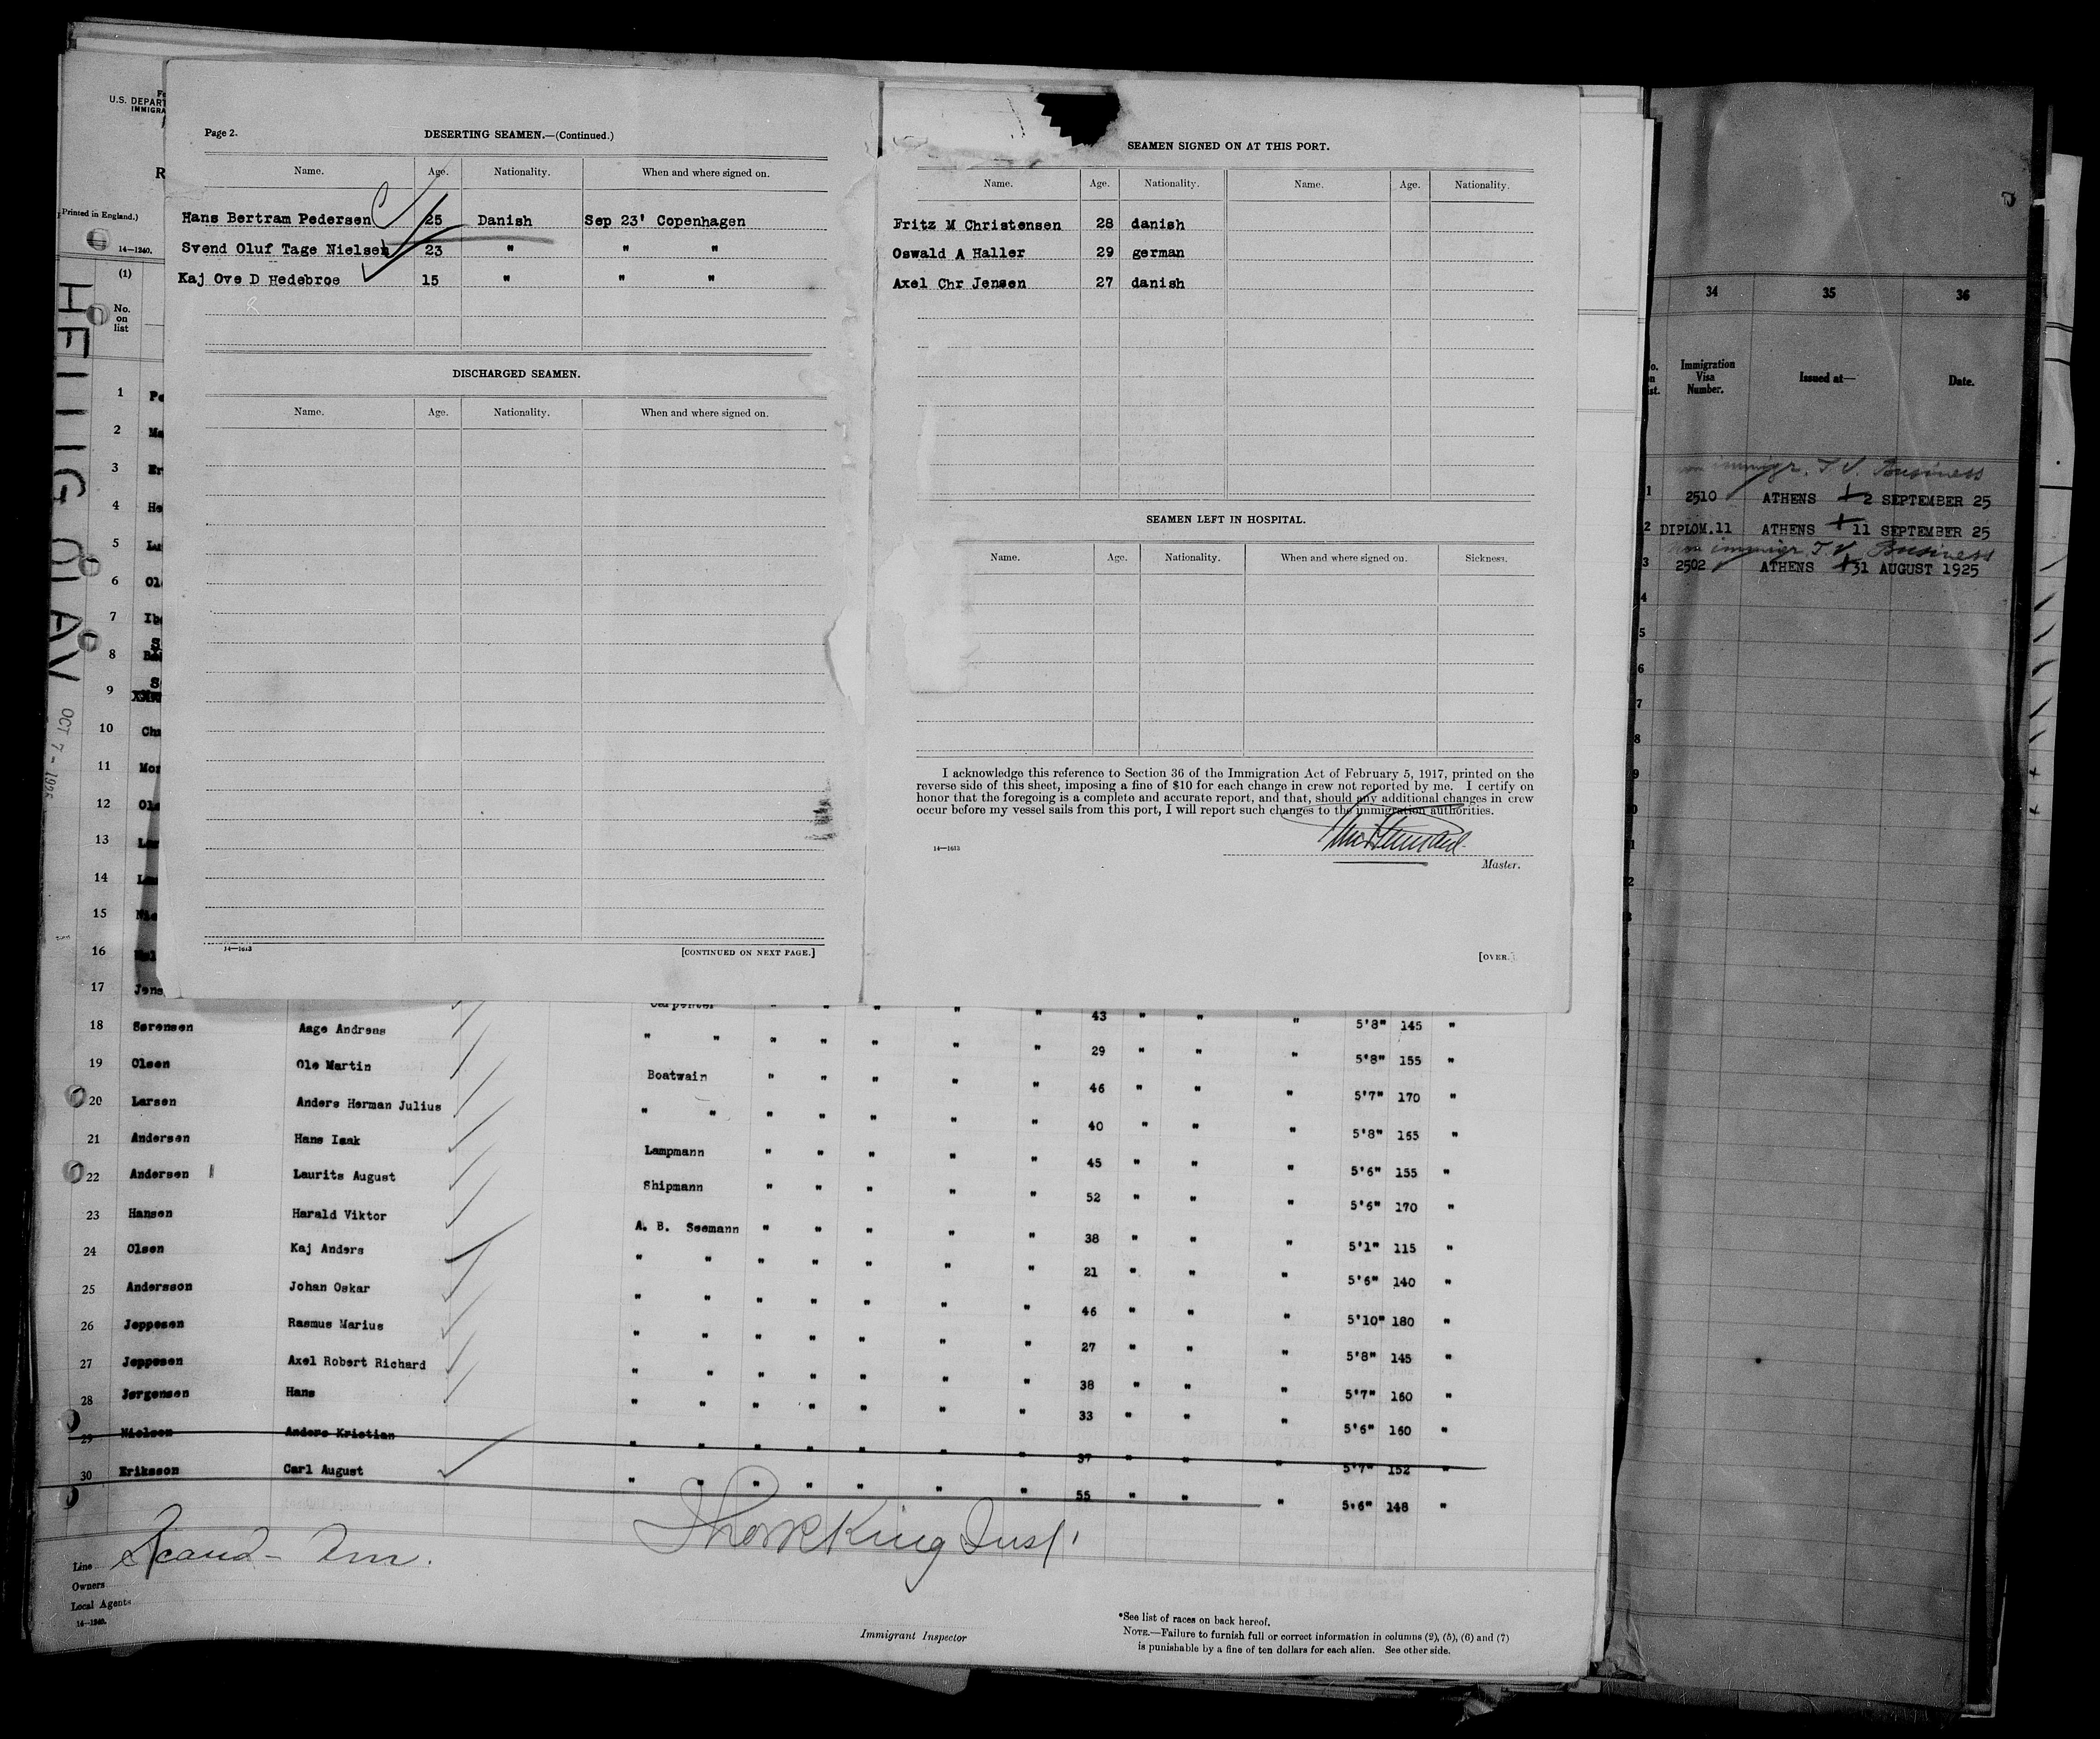 Page 2.
DESERTING SEAMEN.—(Continued.)
Name. Age. Nationality. When and where signed on.
Hans Bertram Pedersen 25 Danish Sep 23' Copenhagen
Svend Oluf Tage Nielsen 23 " " "
Kaj Ove D Hedebroe 15 " " "
DISCHARGED SEAMEN.
Name. Age. Nationality. When and where signed on.
14—1613
[CONTINUED ON NEXT PAGE.]
SEAMEN SIGNED ON AT THIS PORT.
Name. Age. Nationality. Name. Age. Nationality.
Fritz M Christensen 28 danish
Oswald A Haller 29 german
Axel Chr Jensen 27 danish
SEAMEN LEFT IN HOSPITAL.
Name. Age. Nationality. When and where signed on. Sickness.
I acknowledge this reference to Section 36 of the Immigration Act of February 5, 1917, printed on the
reverse side of this sheet, imposing a fine of $10 for each change in crew not reported by me. I certify on
honor that the foregoing is a complete and accurate report, and that, should any additional changes in crew
occur before my vessel sails from this port, I will report such changes to the immigration authorities.
14—1613
Master.
[OVER.]
U.S. DEPART
IMMIGRA
R
Printed in England.)
14—1240.
(1)
No.
on
list
HELLIG OLAV
OCT 7 - 1925
1
2
3
4
5
6
7
8
9
10
11
12
13
14
15
16
17 Jens Carpenter " " " " " 43 " " " 5'8" 145 "
18 Sørensen Aage Andreas " " " " " " " 29 " " " 5'8" 155 "
19 Olsen Ole Martin Boatwain " " " " " 46 " " " 5'7" 170 "
20 Larsen Anders Herman Julius " " " " " " " 40 " " " 5'8" 155 "
21 Andersen Hans Isak Lampmann " " " " " 45 " " " 5'6" 155 "
22 Andersen Laurits August Shipmann " " " " " 52 " " " 5'6" 170 "
23 Hansen Harald Viktor A. B. Seemann " " " " " 38 " " " 5'1" 115 "
24 Olsen Kaj Anders " " " " " " " 21 " " " 5'6" 140 "
25 Andersson Johan Oskar " " " " " " " 46 " " " 5'10" 180 "
26 Jeppesen Rasmus Marius " " " " " " " 27 " " " 5'8" 145 "
27 Jeppesen Axel Robert Richard " " " " " " " 38 " " " 5'7" 160 "
28 Jørgensen Hans " " " " " " " 33 " " " 5'6" 160 "
29 Nielsen Anders Kristian " " " " " " " 37 " " " 5'7" 152 "
30 Eriksson Carl August " " " " " " " 55 " " " 5'6" 148 "
Line Scand- Am.
Owners
Local Agents
14—1240.
Immigrant Inspector
*See list of races on back hereof.
NOTE.—Failure to furnish full or correct information in columns (2), (5), (6) and (7)
is punishable by a fine of ten dollars for each alien. See other side.
34 35 36
Immigration
Visa
Number.
Issued at—
Date.
non immigr. T.V. Business
1 2510 ATHENS 2 SEPTEMBER 25
2 DIPLOM.11 ATHENS 11 SEPTEMBER 25
non immigr. T.V. Business
3 2502 ATHENS 31 AUGUST 1925
4
5
6
7
8
9